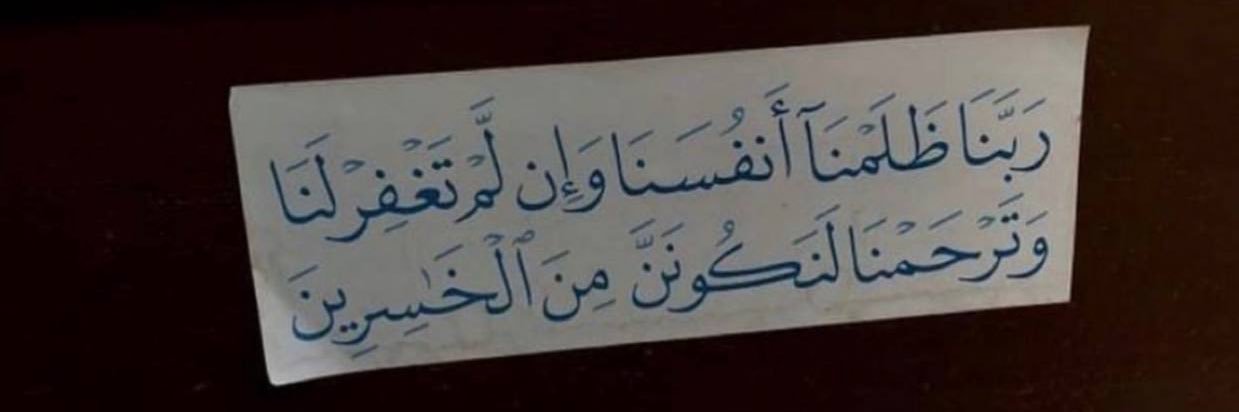 رَبَّنَا ظَلَمۡنَآ أَنفُسَنَا وَإِن لَّمۡ تَغۡفِرۡ لَنَا
وَتَرۡحَمۡنَا لَنَكُونَنَّ مِنَ ٱلۡخَٰسِرِينَ